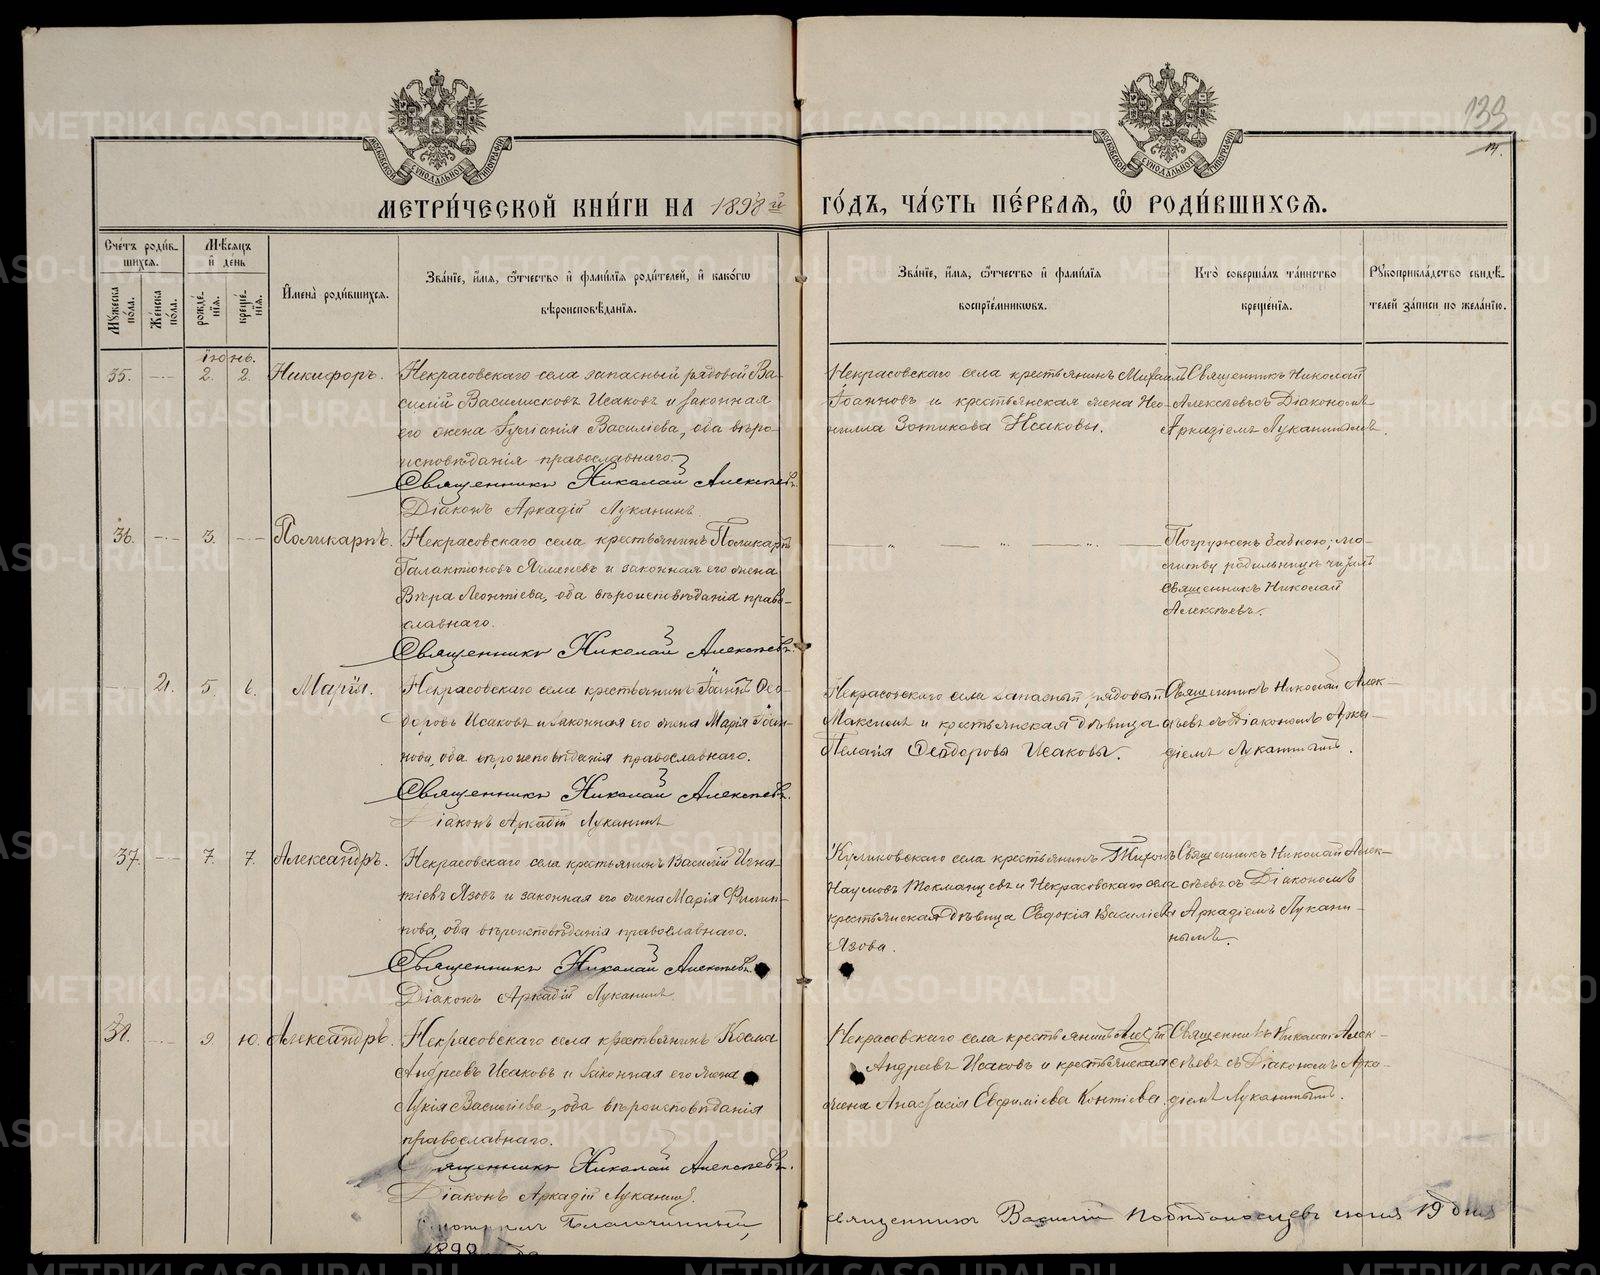 133
МЕТРИ́ЧЕСКОЙ КНИ́ГИ НА 1898й ГО́ДЪ, ЧА́СТЬ ПЕ́РВАѦ, Ѽ РОДИ́ВШИХСѦ.
Счетъ роди́вшихсѧ.
Мѣсѧцъ и де́нь
Мꙋжеска по́ла.
Же́нска по́ла.
рожде́нїѧ.
креще́нїѧ.
Имена̀ роди́вшихсѧ.
Зва́нїе, и́мѧ, ѻ҆́тчество и фами́лїѧ роди́телей, и како́гѡ вѣроисповѣ́данїѧ.
Зва́нїе, и́мѧ, ѻ҆́тчество и фами́лїѧ воспрїе́мниковъ.
Кто̀ соверша́лъ та́инство креще́нїѧ.
Рꙋкоприкла́дство свидѣ́телей за́писи по жела́нїю.
Іюнь.
35. 2. 2. Никифоръ.
Некрасовскаго села запасный рядовой Ва-
силій Василисковъ Исаковъ и законная
его жена Василіева, оба вѣро-
исповѣданія православнаго.
Священникъ Николай Алексѣевъ.
Діаконъ Аркадій Луканинъ.
Некрасовскаго села крестьянинъ Михаилъ
Іоанновъ и крестьянская жена Нео-
нилла Зотикова Исаковы.
Священникъ Николай
Алексѣевъ съ Діакономъ
Аркадіемъ Луканинымъ.
36. 3. Поликарпъ.
Некрасовскаго села крестьянинъ Поликарпъ
Галактіоновъ Ячменевъ и законная его жена
Вѣра Леонтіева, оба вѣроисповѣданія право-
славнаго.
Священникъ Николай Алексѣевъ.
Погруженъ бабкою; мо-
литву родильницѣ читалъ
священникъ Николай
Алексѣевъ.
21. 5. 6. Марія.
Некрасовскаго села крестьянинъ Іоаннъ Ѳео-
доровъ Исаковъ и законная его жена Марія Іоан-
нова, оба вѣроисповѣданія православнаго.
Священникъ Николай Алексѣевъ.
Діаконъ Аркадій Луканинъ
Некрасовскаго села запасный рядовой
Максимъ и крестьянская дѣвица
Пелагія Ѳеодоровы Исаковы.
Священникъ Николай Алек-
сѣевъ съ Діакономъ Арка-
діемъ Луканинымъ.
37. 7. 7. Александръ.
Некрасовскаго села крестьянинъ Василій Игна-
тіевъ Язовъ и законная его жена Марія Филип-
пова, оба вѣроисповѣданія православнаго.
Священникъ Николай Алексѣевъ
Діаконъ Аркадій Луканинъ.
Куликовскаго села крестьянинъ Тихонъ
Наумовъ Токманцевъ и Некрасовскаго села
крестьянская дѣвица Евдокія Василіева
Язова.
Священникъ Николай Алек-
сѣевъ съ Діакономъ
Аркадіемъ Лукани-
нымъ.
38. 9. 10. Александръ.
Некрасовскаго села крестьянинъ Косма
Андреевъ Исаковъ и законная его жена
Лукія Василіева, оба вѣроисповѣданія
православнаго.
Священникъ Николай Алексѣевъ.
Діаконъ Аркадій Луканинъ.
Некрасовскаго села крестьянинъ
Андреевъ Исаковъ и крестьянская
жена Анастасія Евфиміева
Священникъ Николай Алек-
сѣевъ съ Діакономъ Арка-
діемъ Луканинымъ.
Благочинный, священникъ Василій Побѣдоносцевъ іюня 19 дня
1898